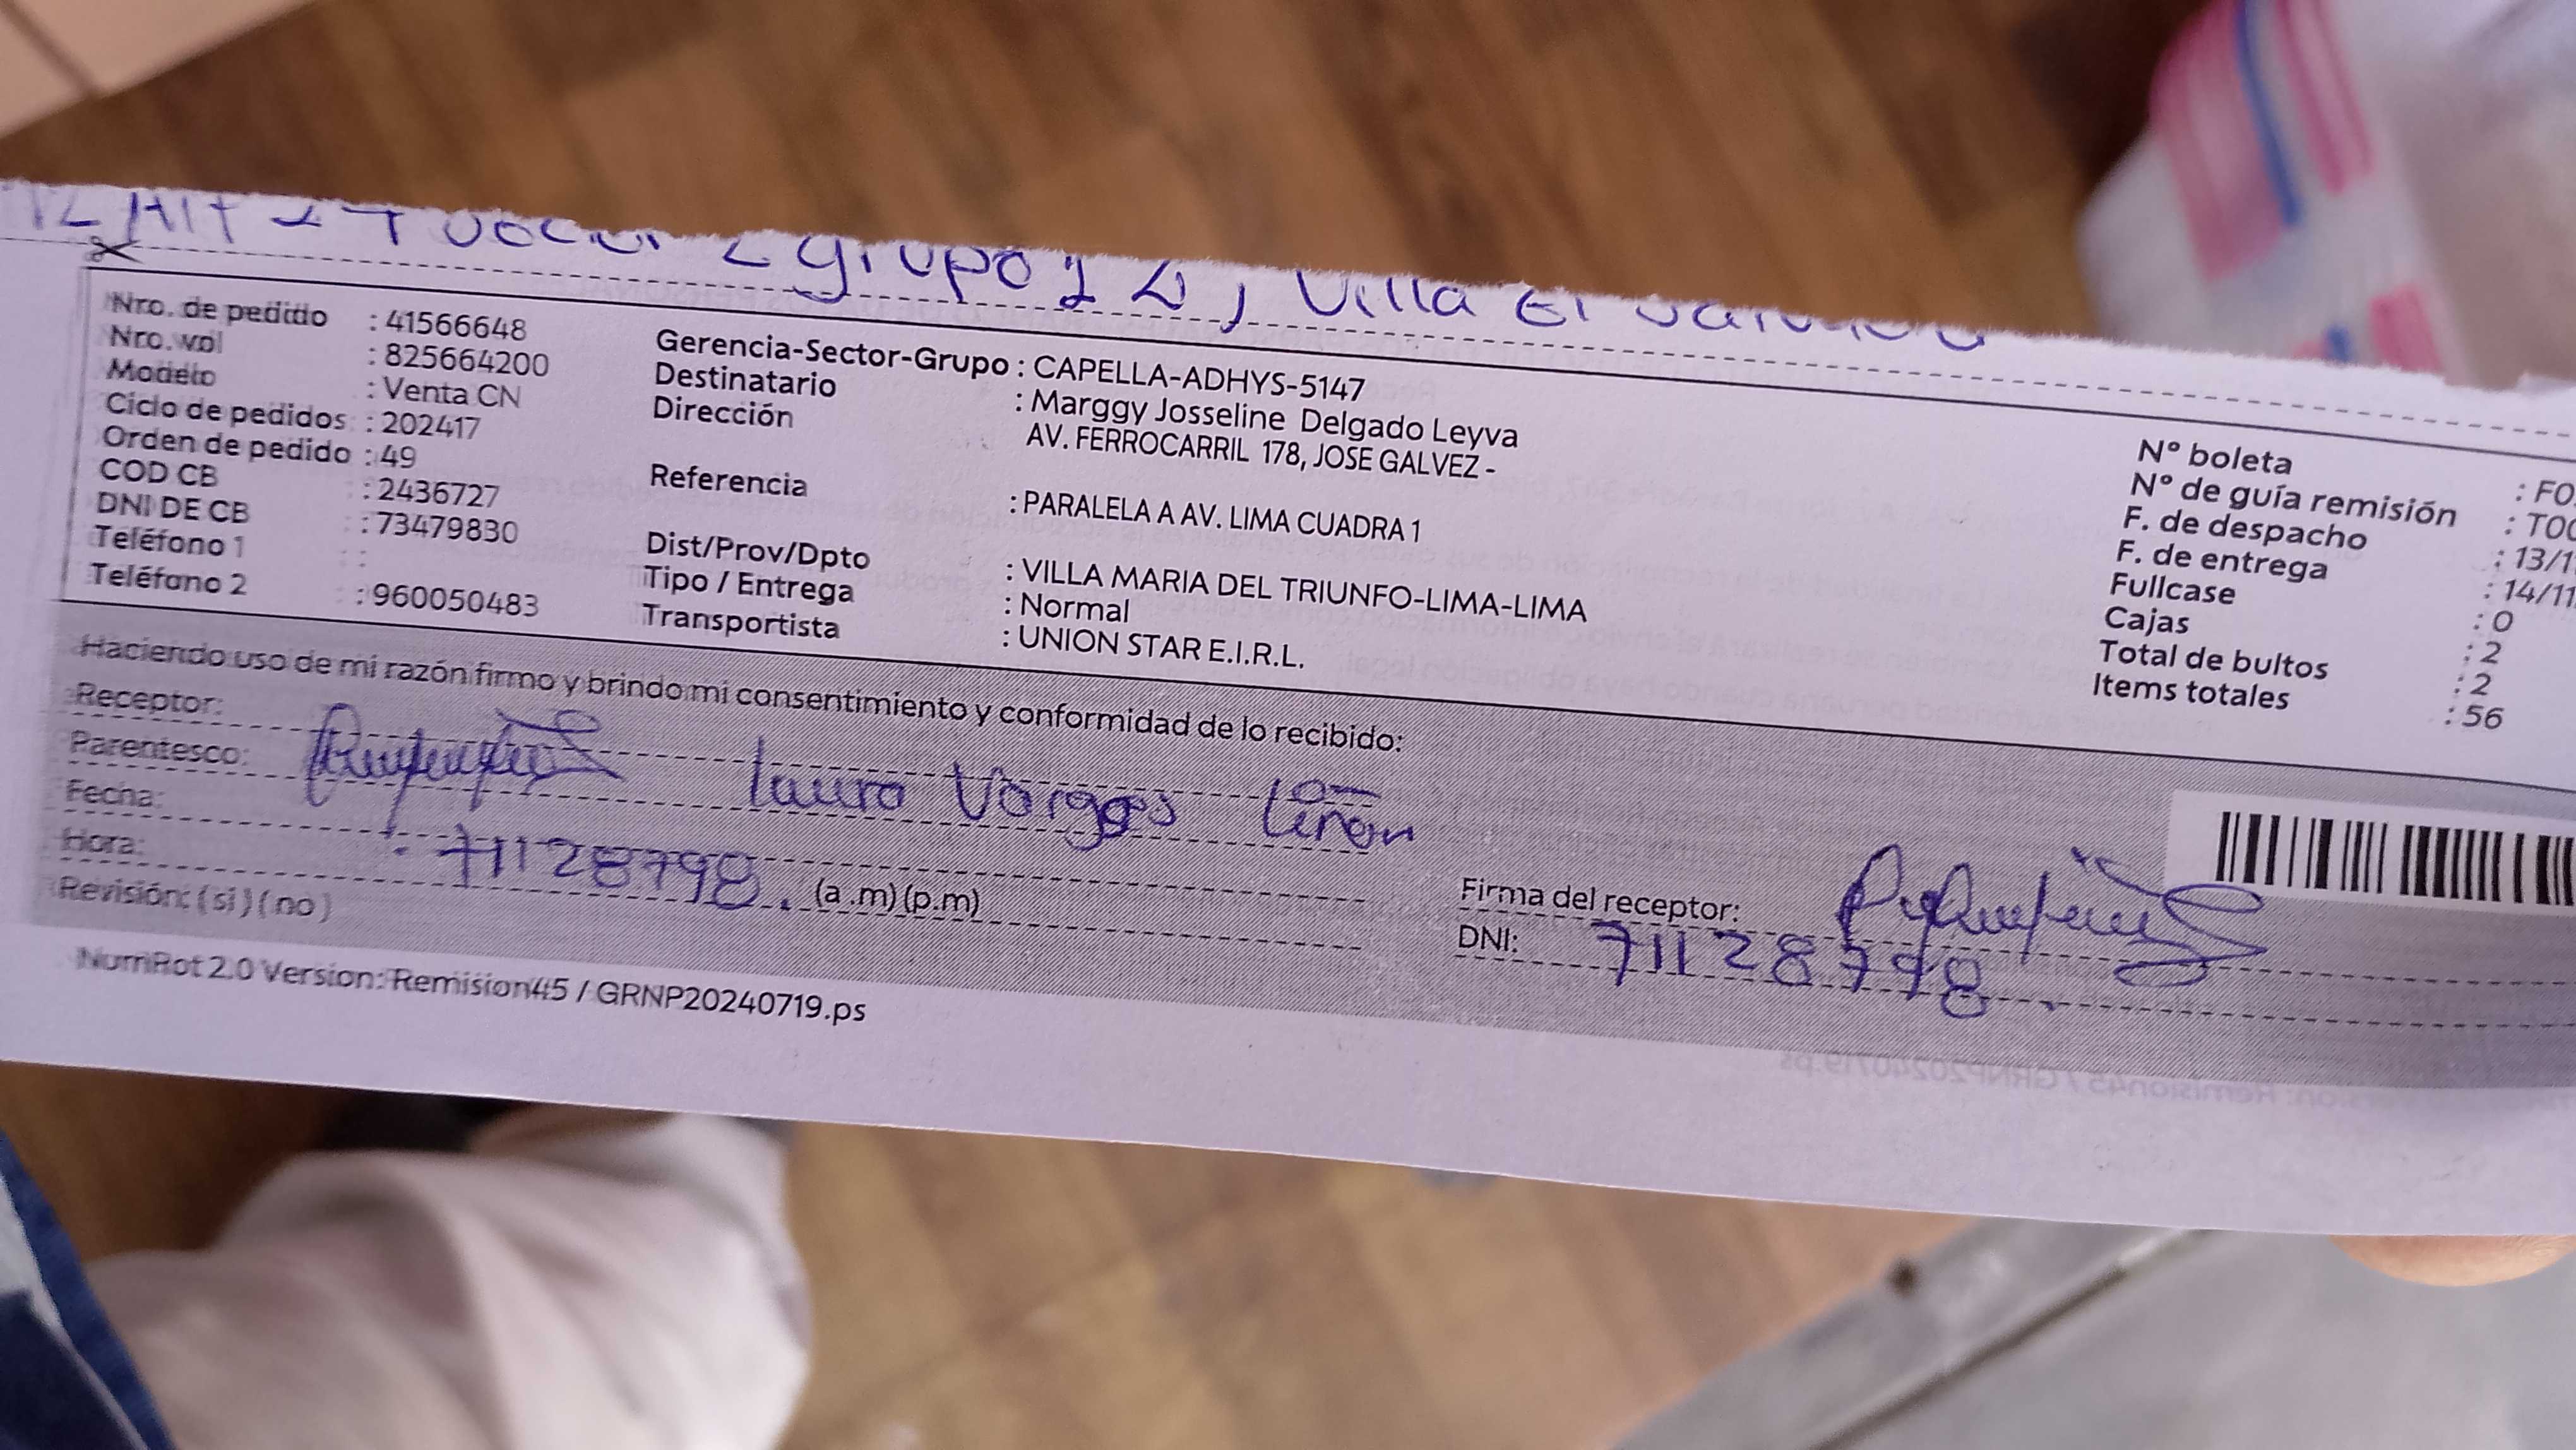 grupo 12, Villa El Salvador
Nro. de pedido : 41566648
Nro. vol : 825664200
Modelo : Venta CN
Ciclo de pedidos : 202417
Orden de pedido : 49
COD CB : 2436727
DNI DE CB : 73479830
Teléfono 1 :
Teléfono 2 : 960050483
Gerencia-Sector-Grupo : CAPELLA-ADHYS-5147
Destinatario : Marggy Josseline Delgado Leyva
Dirección AV. FERROCARRIL 178, JOSE GALVEZ -
Referencia : PARALELA A AV. LIMA CUADRA 1
Dist/Prov/Dpto : VILLA MARIA DEL TRIUNFO-LIMA-LIMA
Tipo / Entrega : Normal
Transportista : UNION STAR E.I.R.L.
N° boleta : F0
N° de guía remisión : T00
F. de despacho : 13/1
F. de entrega : 14/11
Fullcase : 0
Cajas : 2
Total de bultos : 2
Items totales : 56
Haciendo uso de mi razón firmo y brindo mi consentimiento y conformidad de lo recibido:
Receptor:
Parentesco: Laura Vargas
Fecha:
Hora: 71128798. (a.m) (p.m)
Revisión: (si) (no)
Firma del receptor:
DNI: 71128798
NumRot 2.0 Version: Remision45 / GRNP20240719.ps